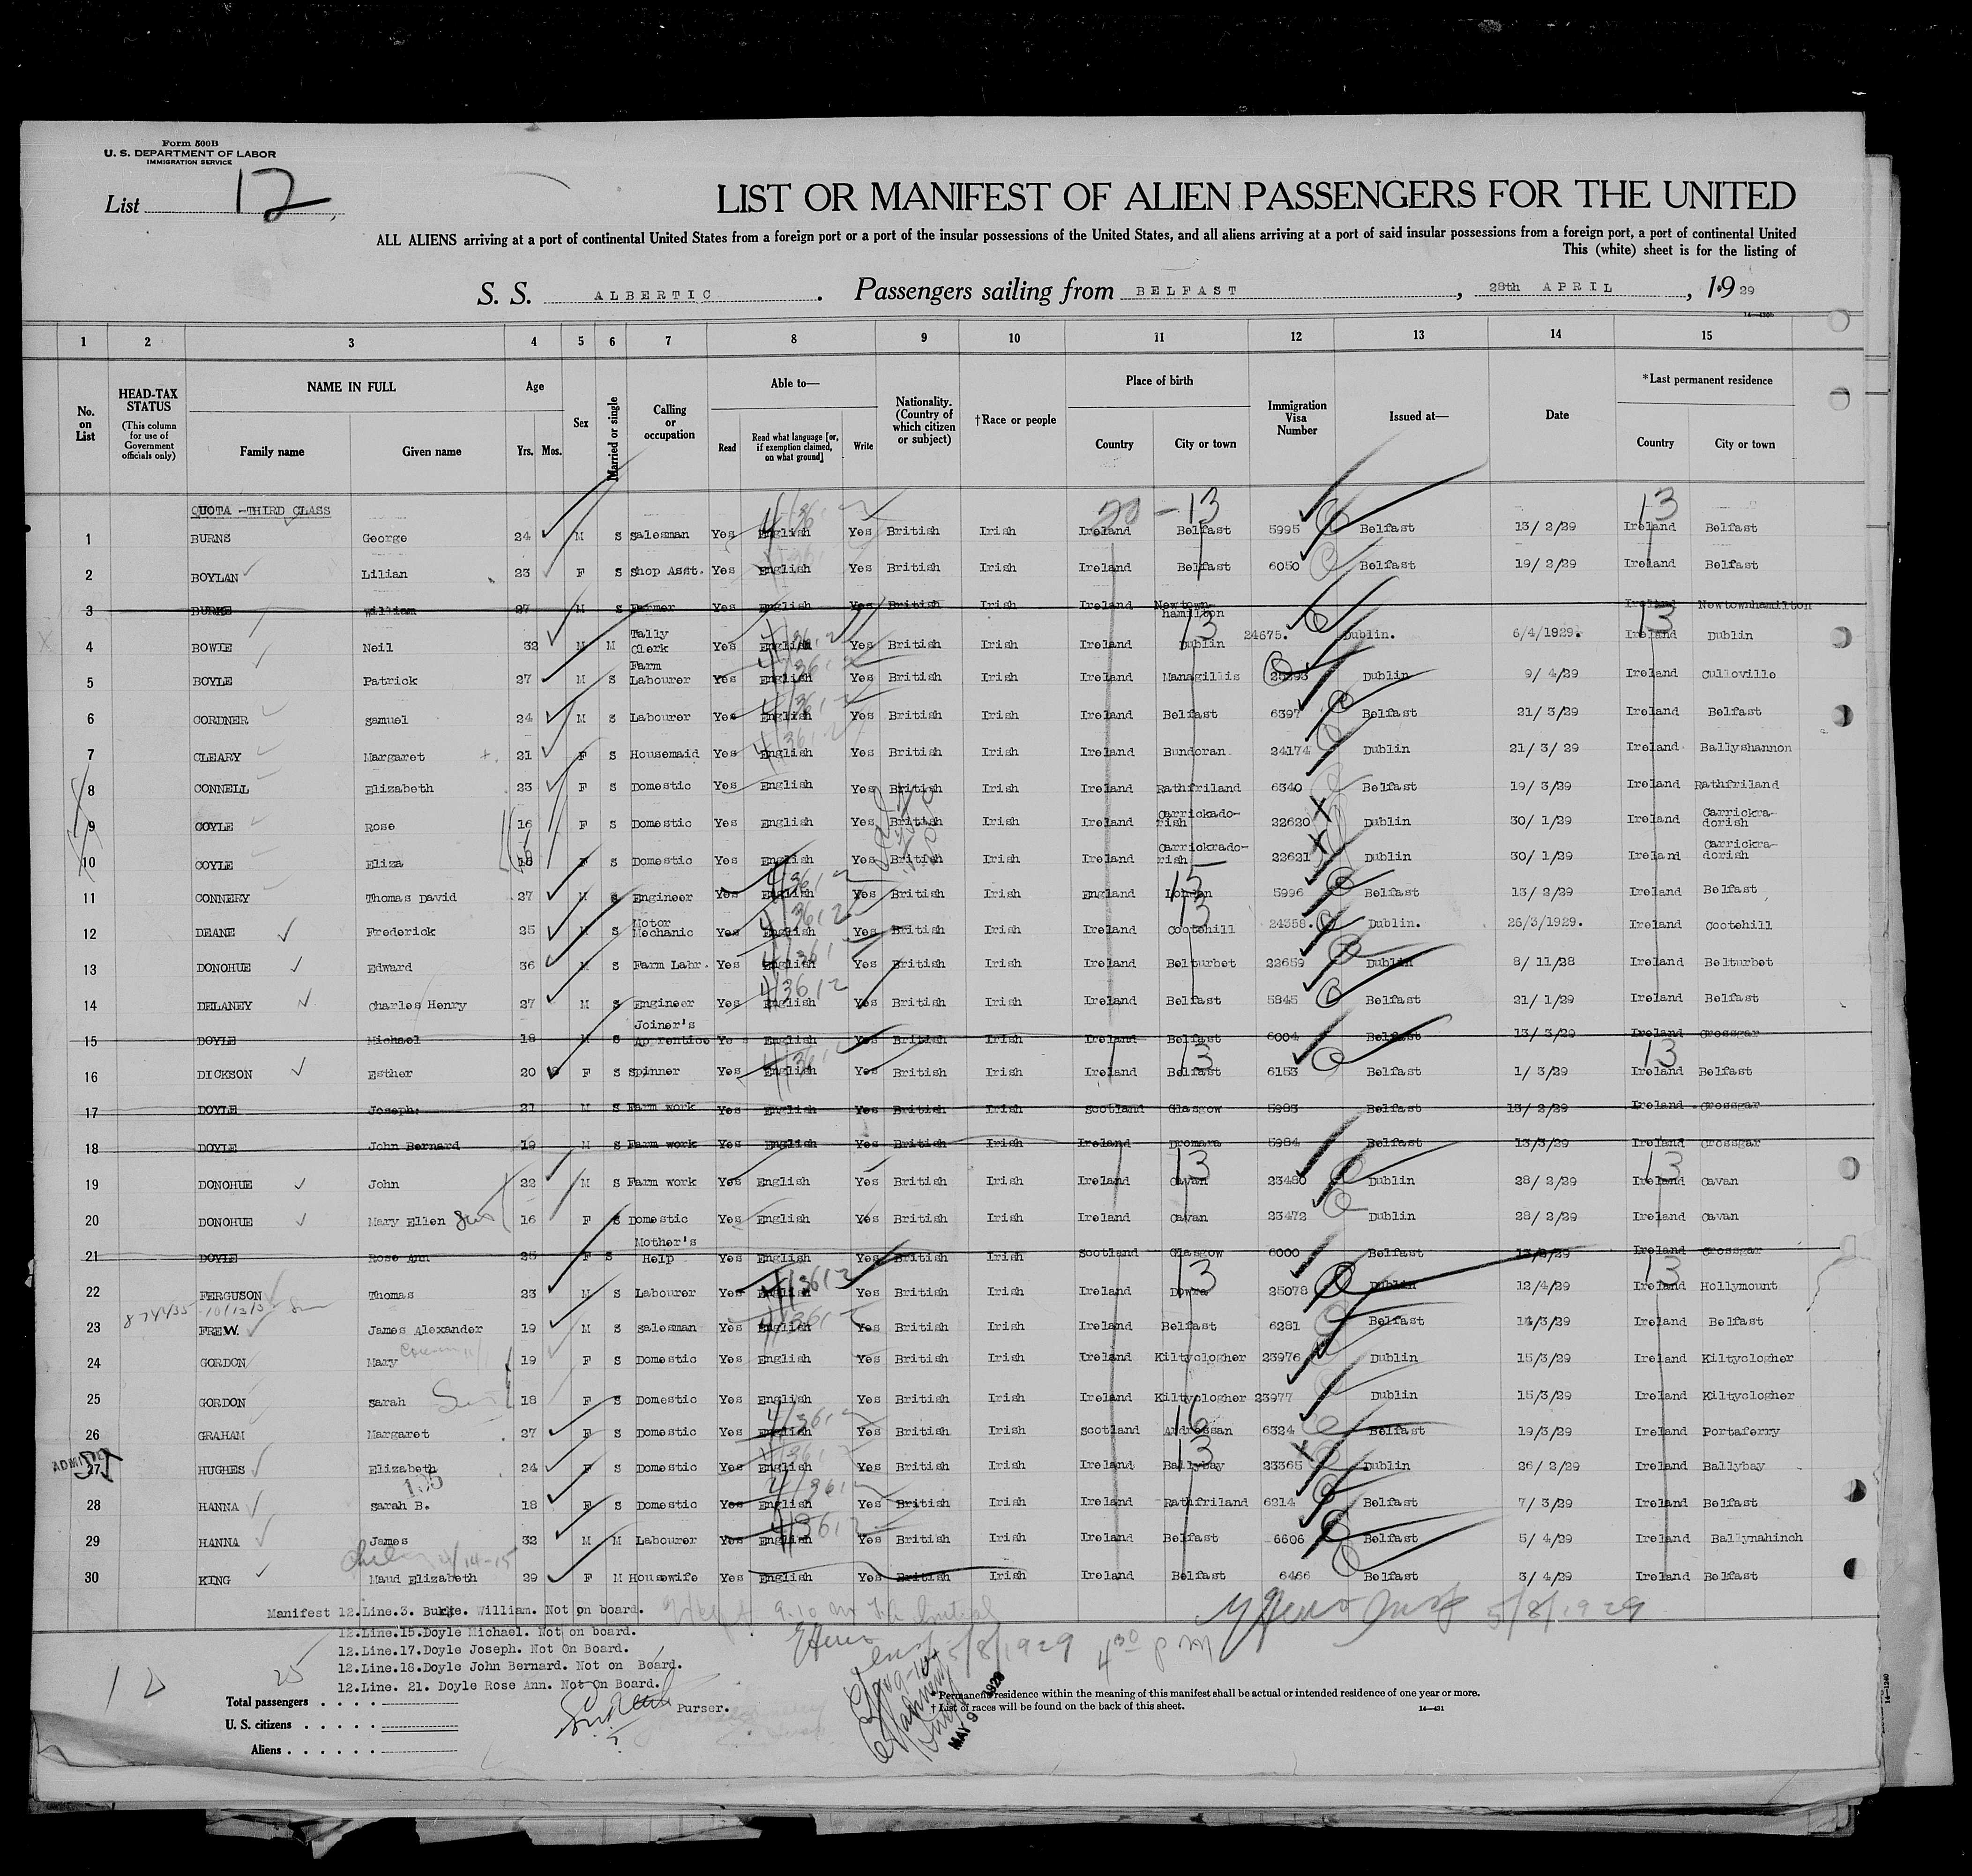 Form 500B
U. S. DEPARTMENT OF LABOR
IMMIGRATION SERVICE
List 12
LIST OR MANIFEST OF ALIEN PASSENGERS FOR THE UNITED
ALL ALIENS arriving at a port of continental United States from a foreign port or a port of the insular possessions of the United States, and all aliens arriving at a port of said insular possessions from a foreign port, a port of continental United
This (white) sheet is for the listing of
S. S. ALBERTIC. Passengers sailing from BELFAST, 28th APRIL, 1929
1 2 3 4 5 6 7 8 9 10 11 12 13 14 15
No. on List
HEAD-TAX STATUS (This column for use of Government officials only)
NAME IN FULL Family name Given name
Age Yrs. Mos.
Sex
Married or single
Calling or occupation
Able to— Read Read what language [or, if exemption claimed, on what ground] Write
Nationality. (Country of which citizen or subject)
†Race or people
Place of birth Country City or town
Immigration Visa Number
Issued at—
Date
*Last permanent residence Country City or town
QUOTA -THIRD CLASS
1 BURNS George 24 M S Salesman Yes English Yes British Irish Ireland Belfast 5995 Belfast 13/ 2/29 Ireland Belfast
2 BOYLAN Lilian 23 F S Shop Asst. Yes English Yes British Irish Ireland Belfast 6050 Belfast 19/ 2/29 Ireland Belfast
3 BURKE William 27 M S Farmer Yes English Yes British Irish Ireland Newtown-hamilton Ireland Newtownhamilton
4 BOWIE Neil 32 M M Tally Clerk Yes English Yes British Irish Ireland Dublin 24675. Dublin. 6/4/1929. Ireland Dublin
5 BOYLE Patrick 27 M S Farm Labourer Yes English Yes British Irish Ireland Managillis Dublin 9/ 4/29 Ireland Culloville
6 CORDNER Samuel 24 M S Labourer Yes English Yes British Irish Ireland Belfast 6397 Belfast 21/ 3/29 Ireland Belfast
7 CLEARY Margaret 21 F S Housemaid Yes English Yes British Irish Ireland Bundoran 24174 Dublin 21/ 3/ 29 Ireland Ballyshannon
8 CONNELL Elizabeth 23 F S Domestic Yes English Yes British Irish Ireland Rathfriland 6340 Belfast 19/ 3/29 Ireland Rathfriland
9 COYLE Rose 16 F S Domestic Yes English Yes British Irish Ireland Carrickado-rish 22620 Dublin 30/ 1/29 Ireland Carrickra-dorish
10 COYLE Eliza 18 F S Domestic Yes English Yes British Irish Ireland Carrickrado-rish 22621 Dublin 30/ 1/29 Ireland Carrickra-dorish
11 CONNERY Thomas David 27 M S Engineer Yes English Yes British Irish England London 5996 Belfast 13/ 2/29 Ireland Belfast
12 DEANE Frederick 25 M S Motor Mechanic Yes English Yes British Irish Ireland Cootehill 24358. Dublin. 26/3/1929. Ireland Cootehill
13 DONOHUE Edward 36 M S Farm Labr. Yes English Yes British Irish Ireland Belturbet 22659 Dublin 8/ 11/28 Ireland Belturbet
14 DELANEY Charles Henry 27 M S Engineer Yes English Yes British Irish Ireland Belfast 5845 Belfast 21/ 1/29 Ireland Belfast
15 DOYLE Michael 18 M S Joiner's Apprentice Yes English Yes British Irish Ireland Belfast 6004 Belfast 13/ 3/29 Ireland Crossgar
16 DICKSON Esther 20 F S Spinner Yes English Yes British Irish Ireland Belfast 6153 Belfast 1/ 3/29 Ireland Belfast
17 DOYLE Joseph 21 M S Farm work Yes English Yes British Irish Scotland Glasgow 5983 Belfast 13/ 2/29 Ireland Crossgar
18 DOYLE John Bernard 19 M S Farm work Yes English Yes British Irish Ireland Dromara 5984 Belfast 13/3/29 Ireland Crossgar
19 DONOHUE John 22 M S Farm work Yes English Yes British Irish Ireland Cavan 23480 Dublin 28/ 2/29 Ireland Cavan
20 DONOHUE Mary Ellen 16 F S Domestic Yes English Yes British Irish Ireland Cavan 23472 Dublin 28/ 2/29 Ireland Cavan
21 DOYLE Rose Ann 25 F S Mother's Help Yes English Yes British Irish Scotland Glasgow 6000 Belfast 13/2/29 Ireland Crossgar
22 FERGUSON Thomas 23 M S Labourer Yes English Yes British Irish Ireland Dowra 25078 Dublin 12/4/29 Ireland Hollymount
23 FREW. James Alexander 19 M S Salesman Yes English Yes British Irish Ireland Belfast 6281 Belfast 14/3/29 Ireland Belfast
24 GORDON Mary 19 F S Domestic Yes English Yes British Irish Ireland Kiltyclogher 23976 Dublin 15/3/29 Ireland Kiltyclogher
25 GORDON Sarah 18 F S Domestic Yes English Yes British Irish Ireland Kiltyclogher 23977 Dublin 15/3/29 Ireland Kiltyclogher
26 GRAHAM Margaret 27 F S Domestic Yes English Yes British Irish Scotland Ardrossan 6324 Belfast 19/3/29 Ireland Portaferry
ADMITTED
27 HUGHES Elizabeth 24 F S Domestic Yes English Yes British Irish Ireland Ballybay 23365 Dublin 26/ 2/29 Ireland Ballybay
28 HANNA Sarah B. 18 F S Domestic Yes English Yes British Irish Ireland Rathfriland 6214 Belfast 7/ 3/29 Ireland Belfast
29 HANNA James 32 M M Labourer Yes English Yes British Irish Ireland Belfast 6606 Belfast 5/ 4/29 Ireland Ballynahinch
30 KING Maud Elizabeth 29 F M Housewife Yes English Yes British Irish Ireland Belfast 6466 Belfast 3/ 4/29 Ireland Belfast
Manifest 12.Line.3. Burke. William. Not on board.
12.Line.15.Doyle Michael. Not on board.
12.Line.17.Doyle Joseph. Not On Board.
12.Line.18.Doyle John Bernard. Not on Board.
12.Line. 21. Doyle Rose Ann. Not On Board.
5/8/1929
5/8/1929 4 30 PM
25
Total passengers
U. S. citizens
Aliens
Purser.
*Permanent residence within the meaning of this manifest shall be actual or intended residence of one year or more.
† List of races will be found on the back of this sheet.